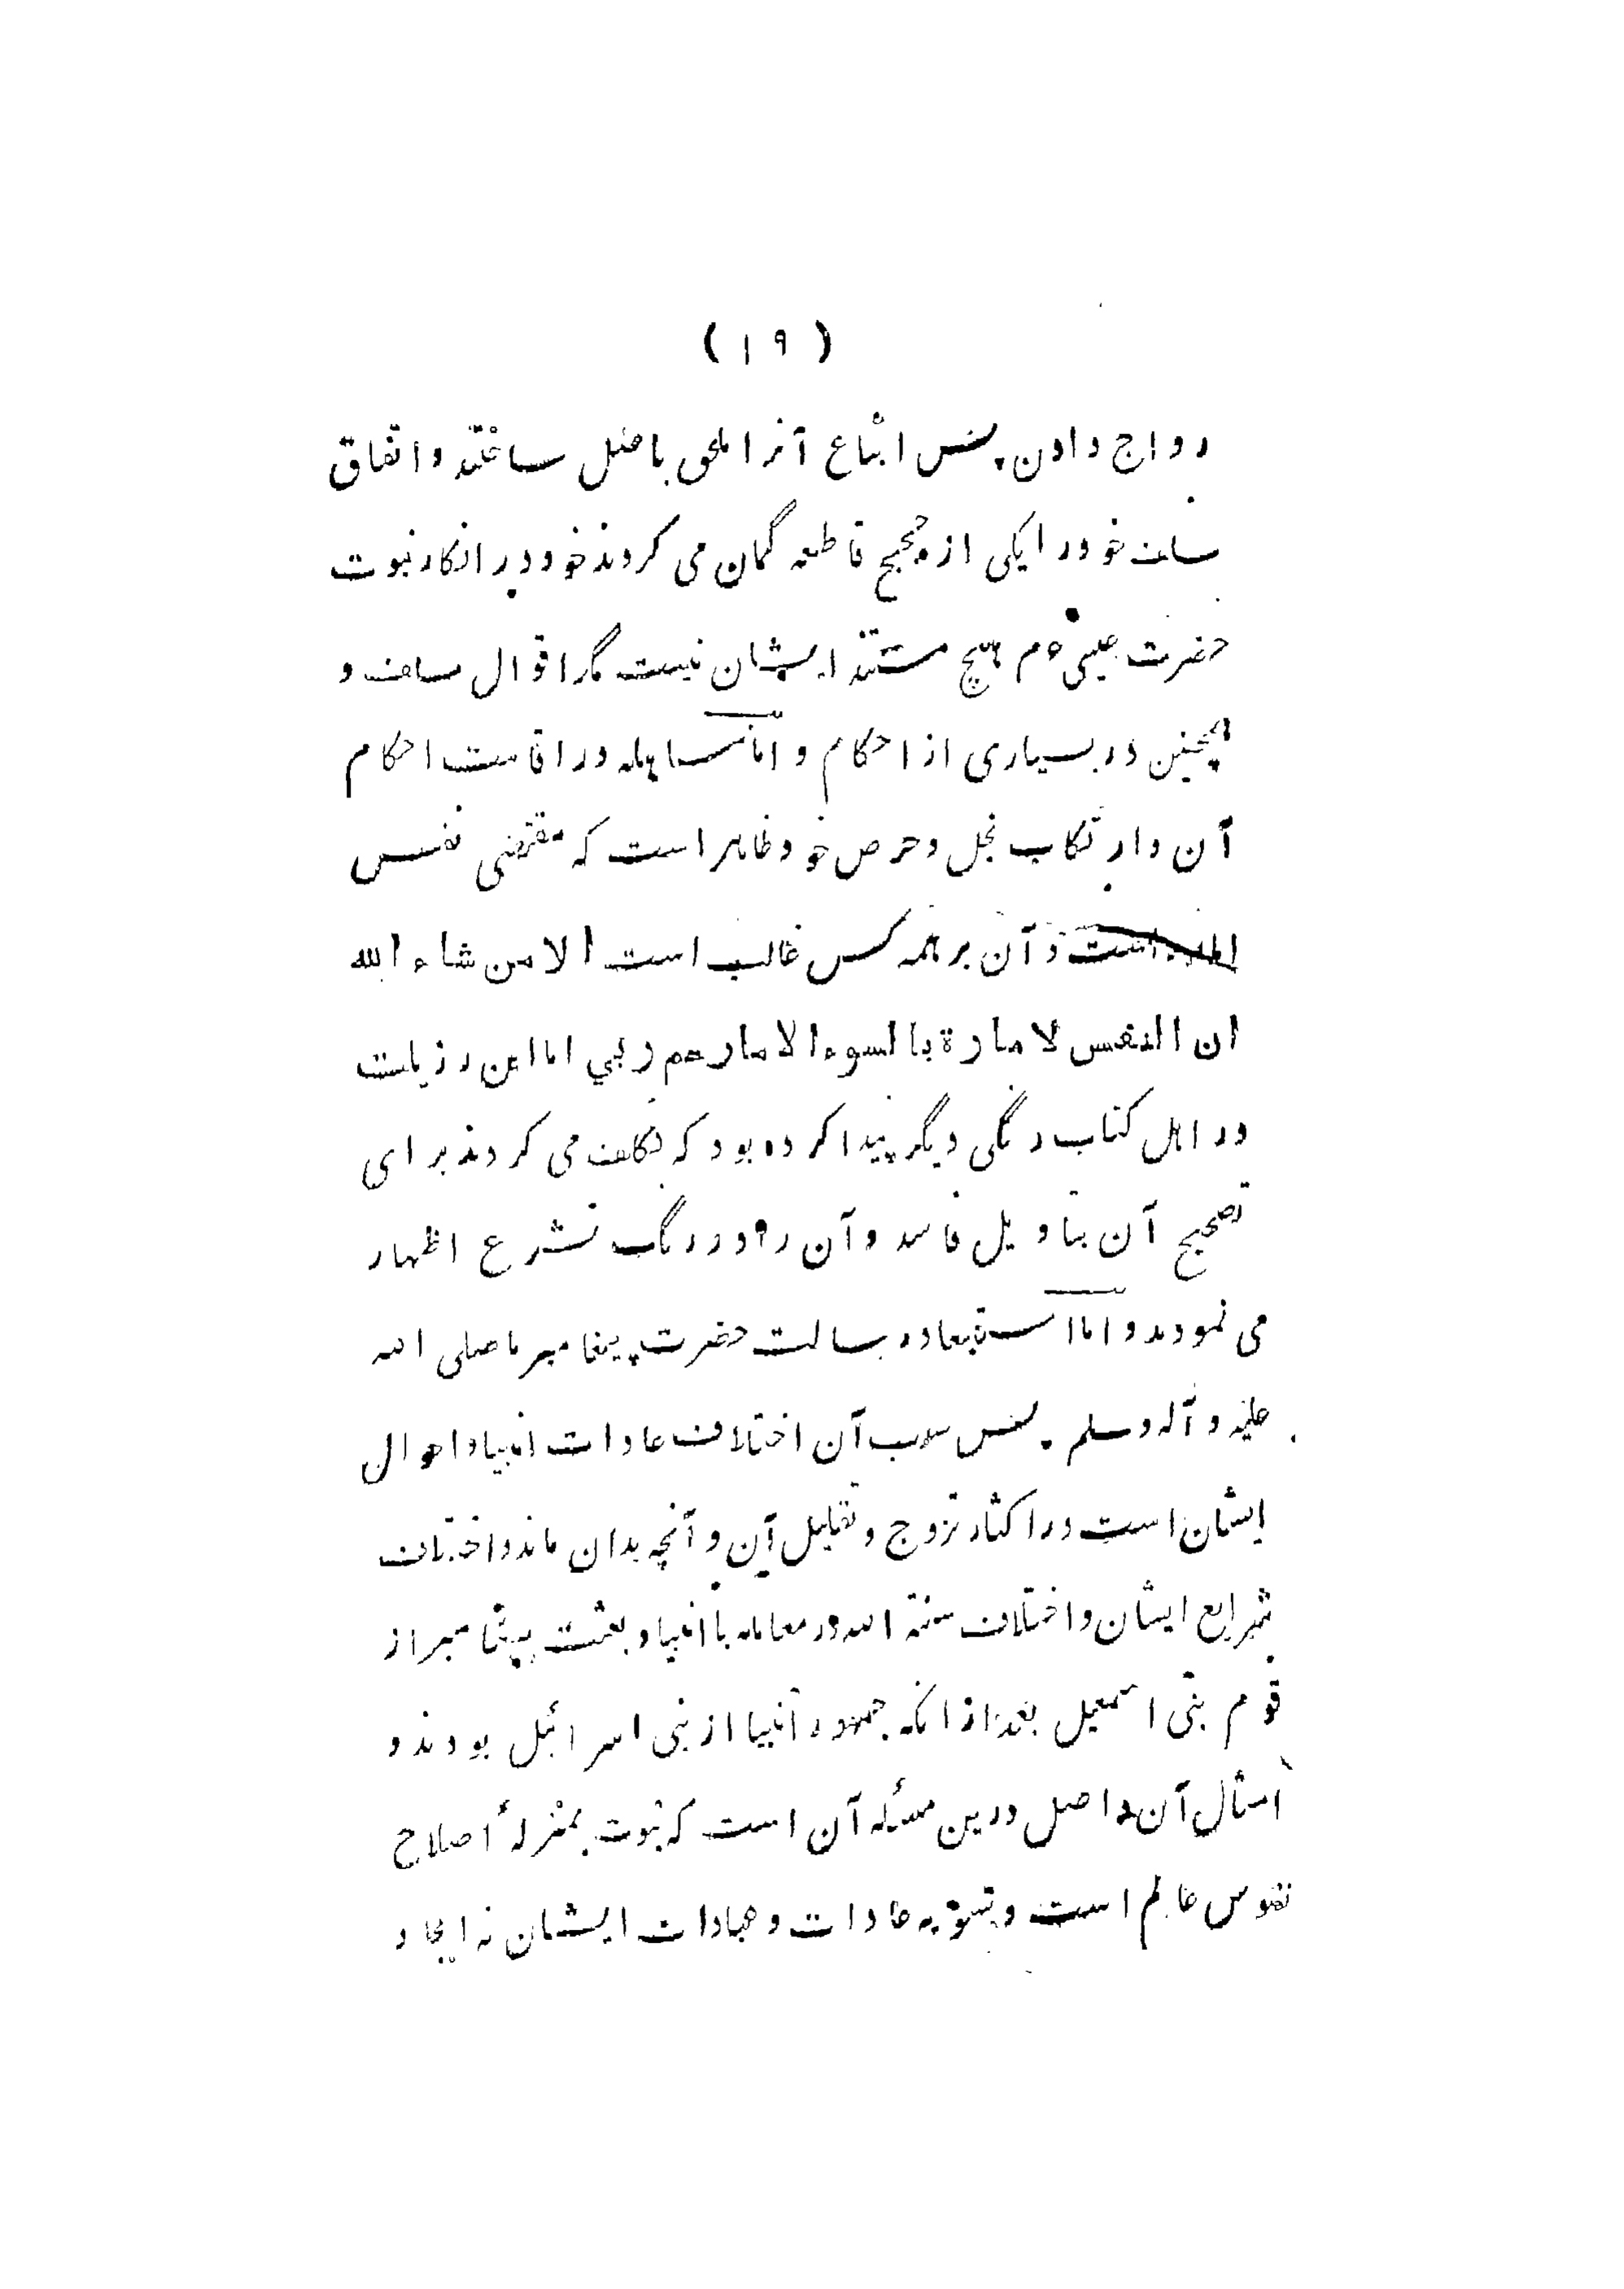 ( ۱۹ )
رواج دادن پس اتباع آنرا ملحق باصل ساختند و اتفاق
سلف خود را یکی از حجج قاطعه گمان می کردند خود در انکار نبوت
حضرت عیسی ع م هیچ مستند ایشان نیست مگر اقوال سلف و
همچنین در بسیاری از احکام و اما مساهله در اقامت احکام
آن و ارتکاب بخل و حرص خود ظاهر است که مقتضی نفس
اماره است و آن بر همه کس غالب است الا من شاء الله
ان النفس لامارة بالسوء الا مارحم ربي اما این رذیلت
در اهل کتاب رنگی دیگر پیدا کرده بود که تکلف می کردند برای
تصحیح آن بتاویل فاسد و آن را در رنگ تشرع اظهار
می نمودند و اما استبعاد رسالت حضرت پیغامبر ما صلی الله
علیه و آله وسلم پس سبب آن اختلاف عادات انبیا و احوال
ایشان است در اکثار تزوج و تقلیل آن و آنچه بدان ماند و اختلاف
شرایع ایشان و اختلاف سنة الله در معامله با انبیا و بعثت پیغامبر از
قوم بنی اسمعیل بعد از انکه جمهور انبیا از بنی اسرائیل بودند و
امثال آن و اصل درین مسئله آن است که نبوت بمنزلۀ اصلاح
نفوس عالم است و تسویه عادات و عبادات ایشان نه ایجاد